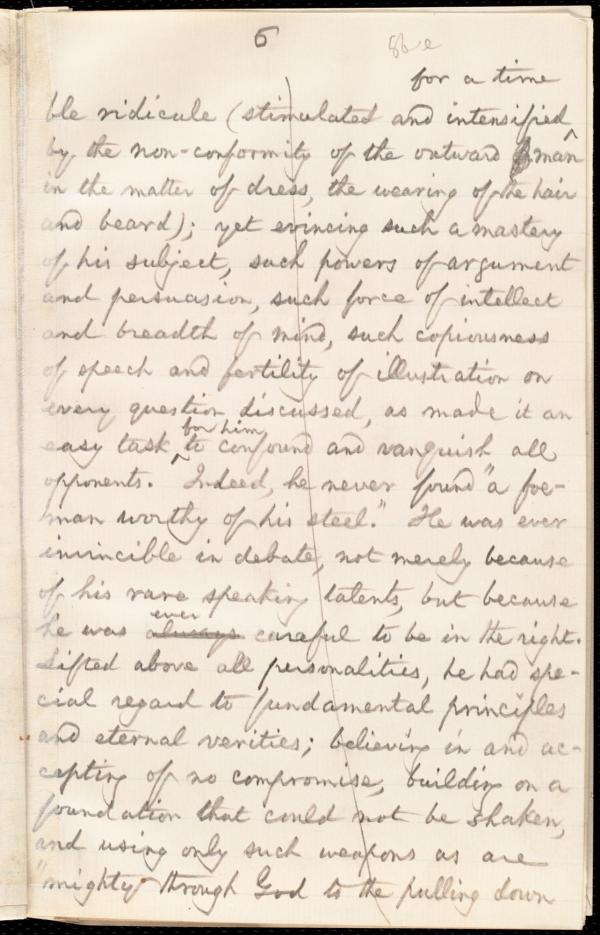 6
86e
for a time
ble ridicule (stimulated and intensified
by the non-conformity of the outward man ^
in the matter of dress, the wearing of the hair
and beard); yet evincing such a mastery
of his subject, such powers of argument
and persuasion, such force of intellect
and breadth of mind, such copiousness
of speech and fertility of illustration on
every question discussed, as made it an
for him
easy task ^ to confound and vanquish all
opponents. Indeed, he never found "a foe-
man worthy of his steel." He was ever
invincible in debate, not merely because
of his rare speaking talents, but because
ever
he was always careful to be in the right.
Lifted above all personalities, he had spe-
cial regard to fundamental principles
and eternal verities; believing in and ac-
cepting of no compromise, building on a
foundation that could not be shaken,
and using only such weapons as are
"mighty through God to the pulling down